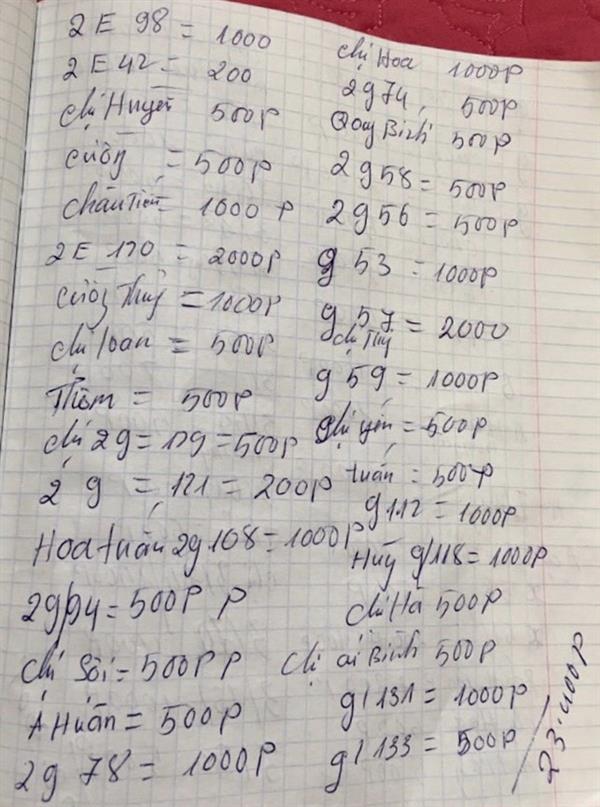 2E 98 = 1000
2E 42 = 200
chị Huyền 500P
cường = 500P
châu Tiến = 1000 P
2E 170 = 2000P
cường Thuý = 1000P
chị loan = 500P
Thơm = 500P
chị 2g = 179 = 500P
2 g = 121 = 200P
Hoa tuấn 2g 108 = 1000P
2g/94 = 500P P
chị Sôi = 500P P
A Huấn = 500P
2g 78 = 1000P
chị Hoa 1000P
2g74, 500P
Bình 500P
2g58 = 500P
2g56 = 500P
g 53 = 1000P
g 57 = 2000
chị Thuý
g 59 = 1000P
chị yến = 500P
tuấn = 500P
g112 = 1000P
Huy g/118 = 1000P
chị Hà 500P
chị ái Bình 500P
g/131 = 1000P
g/133 = 500P
23.400P